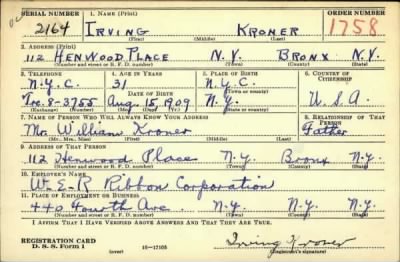 SERIAL NUMBER 1. NAME (Print) ORDER NUMBER
2164 IRVING KRONER 1758
(First) (Middle) (Last)
2. ADDRESS (Print)
112 HENWOOD PLACE N.Y. BRONX N.Y.
(Number and street or R. F. D. number) (Town) (County) (State)
3. TELEPHONE 4. AGE IN YEARS 5. PLACE OF BIRTH 6. COUNTRY OF CITIZENSHIP
N.Y.C. 31 N.Y.C.
DATE OF BIRTH (Town or county)
Tre. 8-3755 Aug. 15, 1909 N.Y. U.S.A.
(Exchange) (Number) (Mo.) (Day) (Yr.) (State or country)
7. NAME OF PERSON WHO WILL ALWAYS KNOW YOUR ADDRESS 8. RELATIONSHIP OF THAT PERSON
Mr. William Kroner Father
(Mr., Mrs., Miss) (First) (Middle) (Last)
9. ADDRESS OF THAT PERSON
112 Henwood Place N.Y. Bronx N.Y.
(Number and street or R. F. D. number) (Town) (County) (State)
10. EMPLOYER'S NAME
W-E-R Ribbon Corporation
11. PLACE OF EMPLOYMENT OR BUSINESS
440 Fourth Ave. N.Y. N.Y. N.Y.
(Number and street or R. F. D. number) (Town) (County) (State)
I AFFIRM THAT I HAVE VERIFIED ABOVE ANSWERS AND THAT THEY ARE TRUE.
REGISTRATION CARD
D. S. S. Form 1 (over) 16-17105 Irving Kroner
(Registrant's signature)